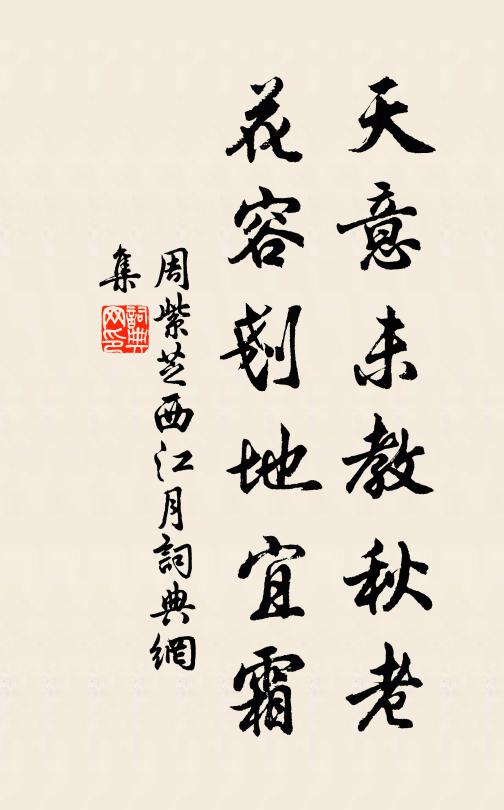 天意未教秋老
花容剗地宜霜
周紫芝西江月詞典網
集
詞典网印